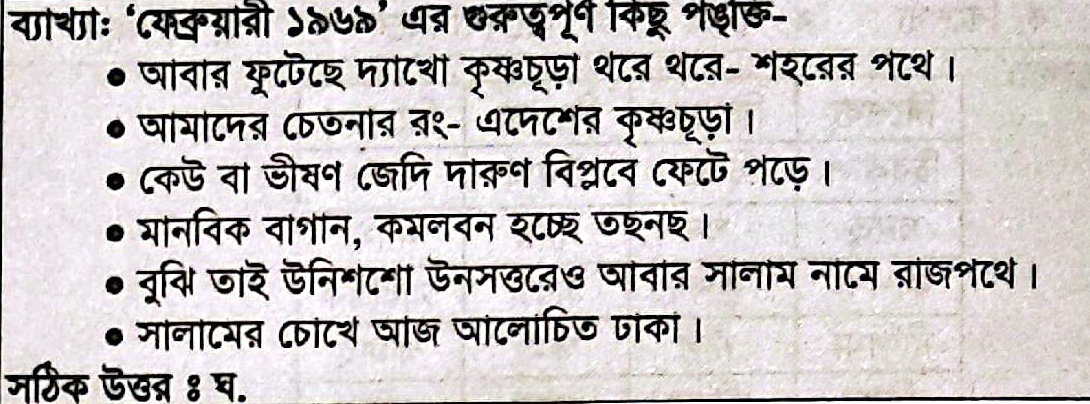 ব্যাখ্যাঃ ‘ফেব্রুয়ারী ১৯৬৯’ এর গুরুত্বপূর্ণ কিছু পঙক্তি-
• আবার ফুটেছে দ্যাখো কৃষ্ণচূড়া থরে থরে- শহরের পথে।
• আমাদের চেতনার রং- এদেশের কৃষ্ণচূড়া।
• কেউ বা ভীষণ জেদি দারুণ বিপ্লবে ফেটে পড়ে।
• মানবিক বাগান, কমলবন হচ্ছে তছনছ।
• বুঝি তাই উনিশশো উনসত্তরেও আবার সালাম নামে রাজপথে।
• সালামের চোখে আজ আলোচিত ঢাকা।
সঠিক উত্তর ঃ ঘ.